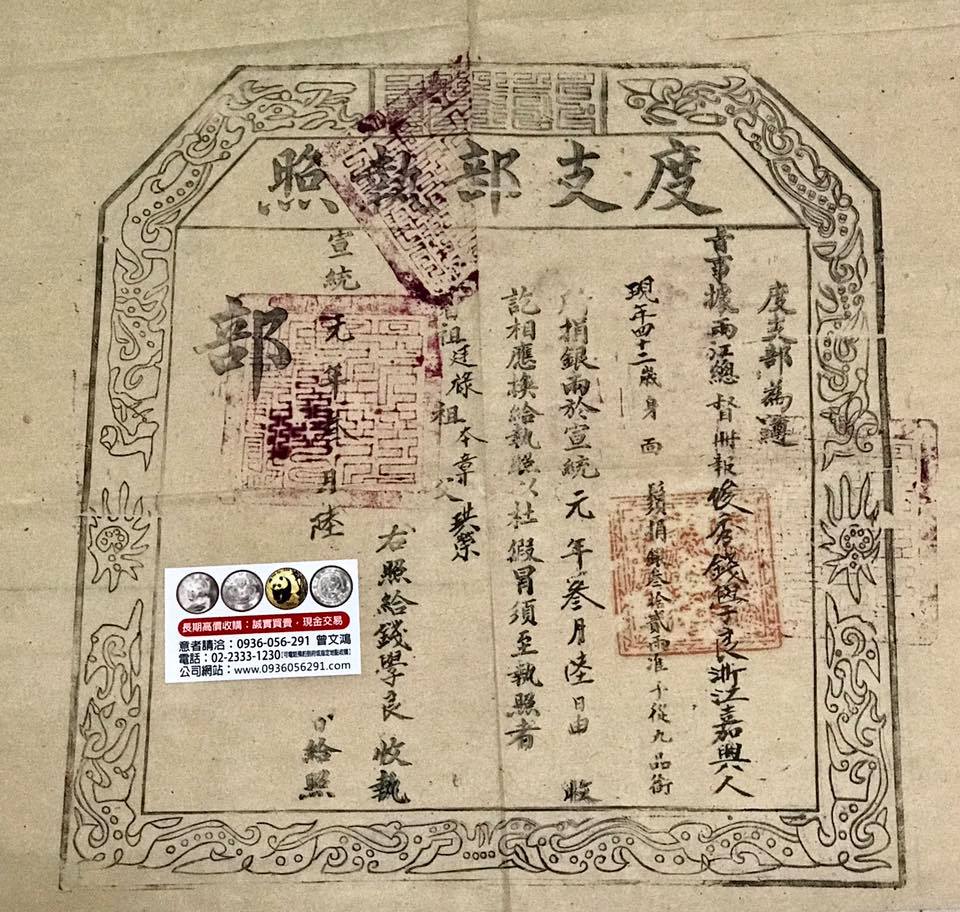 度支部執照
度支部為
事據兩江總督冊報俊秀錢學良浙江嘉興人
現年四十二歲身 面 鬚捐銀叁拾貳兩准予從九品銜
捐銀兩於宣統元年叁月陸日由 收
訖相應換給執照以杜假冒須至執照者
曾祖廷祿祖本章父
右照給錢學良 收執
宣統元年叁月陸 日給照
部
長期高價收購:誠實買賣‧現金交易
意者請洽:0936-056-291 曾文鴻
電話:02-2333-1230
公司網站:www.0936056291.com